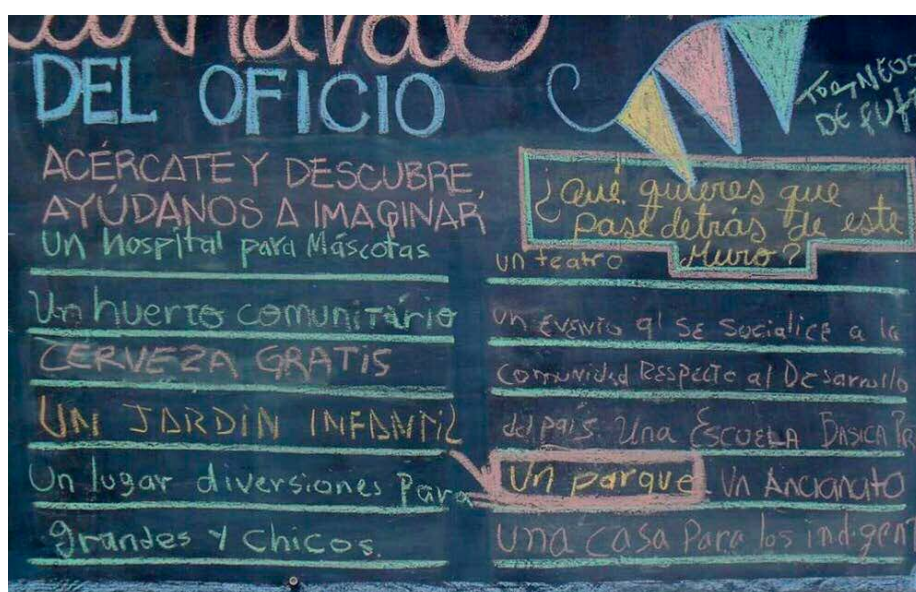 DEL OFICIO
ACÉRCATE Y DESCUBRE,
AYÚDANOS A IMAGINAR
Un hospital para Máscotas
Un huerto comunitário
CERVEZA GRATIS
UN JARDIN INFANTIL
Un lugar diversiones Para
grandes y chicos.
DE
¿Qué quieres que
pase detrás de este
Muro?
un teatro
un EVENTO q' SE Socialice a la
Comunidad RESPECTO al DEsarrollo
del país. Una ESCUELA BASICA
Un parque. Un Ancianato
una casa Para los